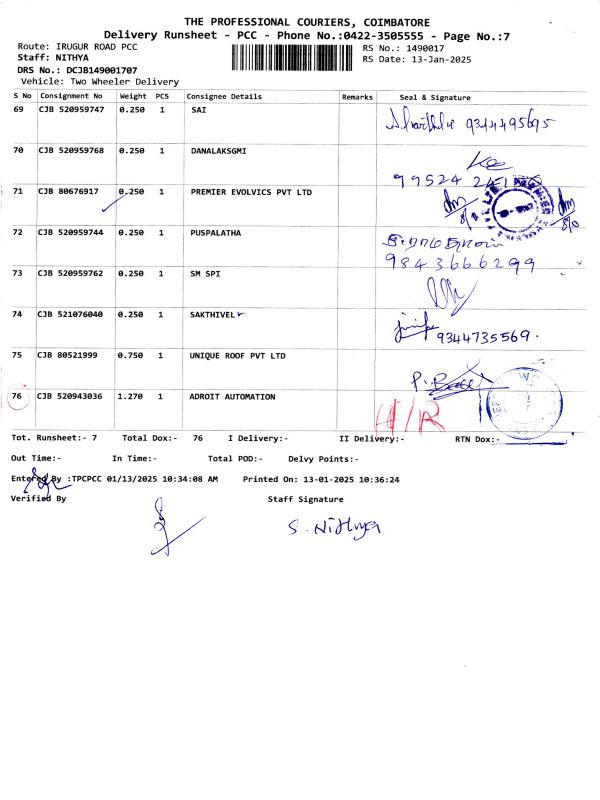 THE PROFESSIONAL COURIERS, COIMBATORE
Delivery Runsheet - PCC - Phone No.:0422-3505555 - Page No.:7
Route: IRUGUR ROAD PCC RS No.: 1490017
Staff: NITHYA RS Date: 13-Jan-2025
DRS No.: DCJB149001707
Vehicle: Two Wheeler Delivery
S No Consignment No Weight PCS Consignee Details Remarks Seal & Signature
69 CJB 520959747 0.250 1 SAI 9344495695
70 CJB 520959768 0.250 1 DANALAKSGMI
99524
71 CJB 80676917 0.250 1 PREMIER EVOLVICS PVT LTD
72 CJB 520959744 0.250 1 PUSPALATHA
9843666299
73 CJB 520959762 0.250 1 SM SPI
74 CJB 521076040 0.250 1 SAKTHIVEL
9344735569.
75 CJB 80521999 0.750 1 UNIQUE ROOF PVT LTD
76 CJB 520943036 1.270 1 ADROIT AUTOMATION
Tot. Runsheet:- 7 Total Dox:- 76 I Delivery:- II Delivery:- RTN Dox:-
Out Time:- In Time:- Total POD:- Delvy Points:-
Entered By :TPCPCC 01/13/2025 10:34:08 AM Printed On: 13-01-2025 10:36:24
Verified By Staff Signature
S. Nithya